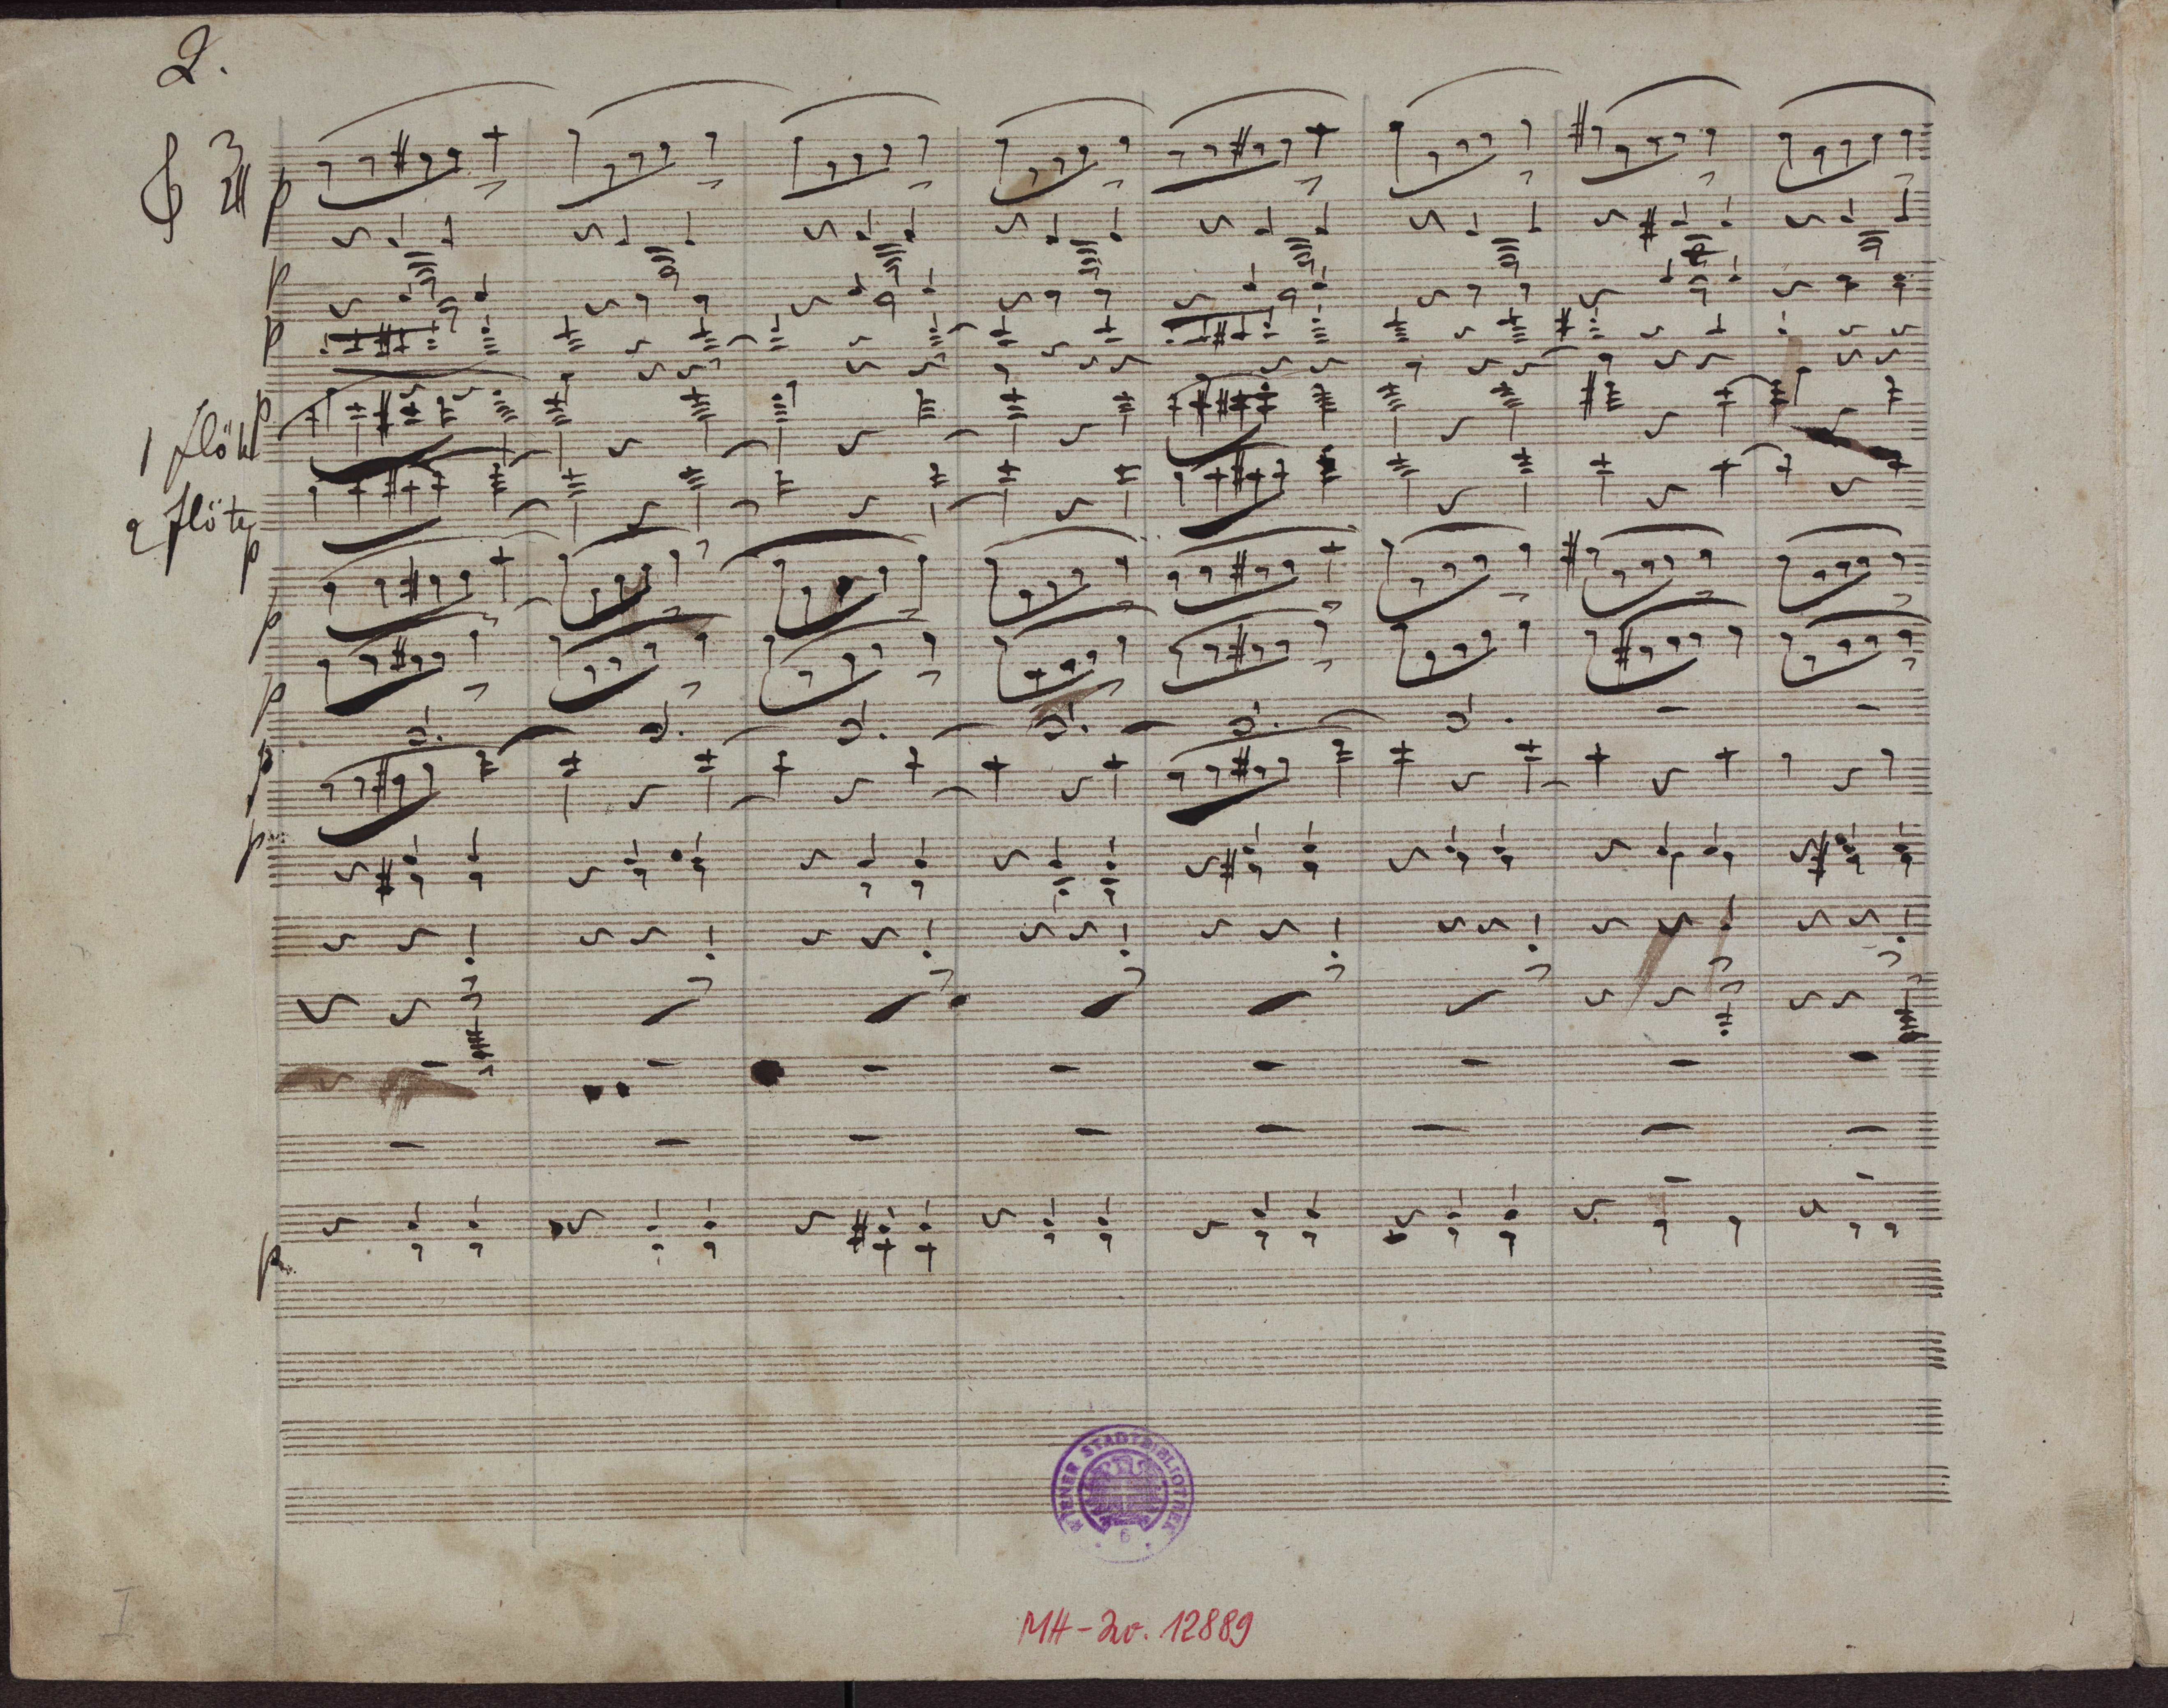 2.
3
4
p
p
p
p
1 flöte
2 flöte
p
p
p
p
p
p
WIENER STADTBIBLIOTHEK
6
MH-Inv. 12889
I